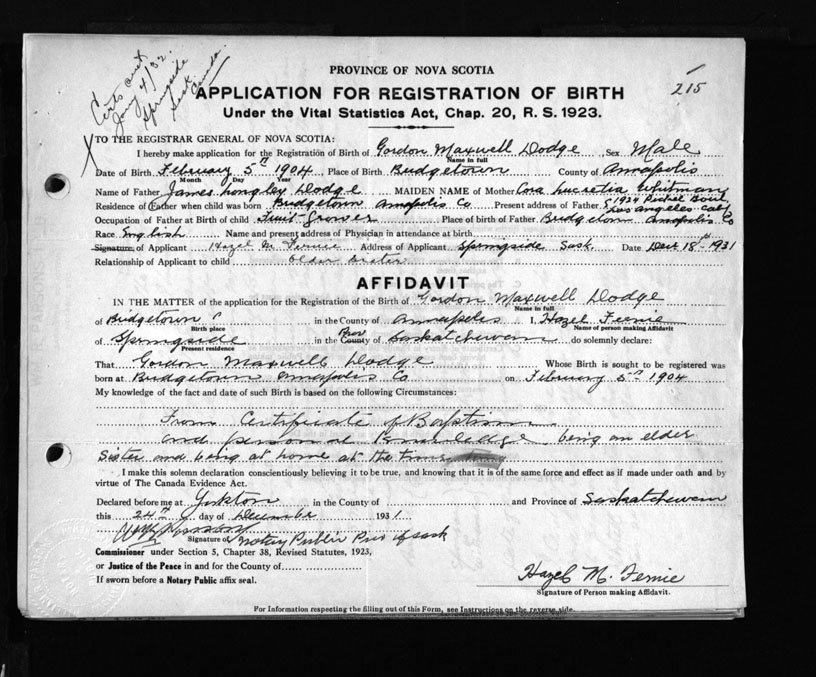 Certs sent
Jany 4/32.
Springside
Sask
PROVINCE OF NOVA SCOTIA
215
APPLICATION FOR REGISTRATION OF BIRTH
Under the Vital Statistics Act, Chap. 20, R. S. 1923.
TO THE REGISTRAR GENERAL OF NOVA SCOTIA:
I hereby make application for the Registration of Birth of Gordon Maxwell Dodge Sex Male
Name in full
Date of Birth February 5th 1904 Place of Birth Bridgetown County of Annapolis
Month Day Year
Name of Father James Longley Dodge MAIDEN NAME of Mother Cora Lucretia Whitman
Residence of Father when child was born Bridgetown Annapolis Co Present address of Father 1934
Los Angeles Calif
Occupation of Father at Birth of child Fruit-Grower Place of birth of Father Bridgetown Annapolis Co
Race English Name and present address of Physician in attendance at birth
Signature of Applicant Hazel M. Fernie Address of Applicant Springside Sask. Date Dec 18th 1931
Relationship of Applicant to child older sister
AFFIDAVIT
IN THE MATTER of the application for the Registration of the Birth of Gordon Maxwell Dodge
Name in full
of Bridgetown in the County of Annapolis I, Hazel Fernie
Birth place Name of person making Affidavit
of Springside in the County Prov of Saskatchewan do solemnly declare:
Present residence
That Gordon Maxwell Dodge Whose Birth is sought to be registered was
born at Bridgetown Annapolis Co on February 5th 1904
My knowledge of the fact and date of such Birth is based on the following Circumstances:
From Certificate of Baptism
and personal knowledge being an elder
sister and being at home at the time
I make this solemn declaration conscientiously believing it to be true, and knowing that it is of the same force and effect as if made under oath and by
virtue of The Canada Evidence Act.
Declared before me at Yorkton in the County of and Province of Saskatchewan
this 24th day of December 1931
Signature of Notary Public Prov of Sask
Commissioner under Section 5, Chapter 38, Revised Statutes, 1923,
or Justice of the Peace in and for the County of
If sworn before a Notary Public affix seal.
Hazel M. Fernie
Signature of Person making Affidavit.
For Information respecting the filling out of this Form, see Instructions on the reverse side.